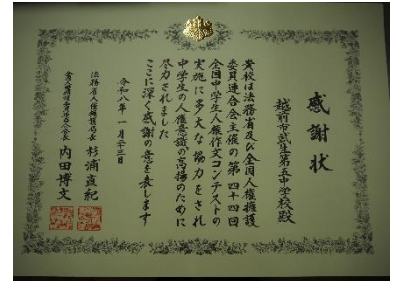 感謝状
越前市武生第五中学校殿
貴校は法務省及び全国人権擁護
委員連合会主催の第四十四回
全国中学生人権作文コンテストの
実施に多大な協力をされ
中学生の人権意識の高揚のために
尽力されました
ここに深く感謝の意を表します
令和八年一月二十三日
法務省人権擁護局長 杉浦直紀
全国人権擁護委員連合会会長 内田博文